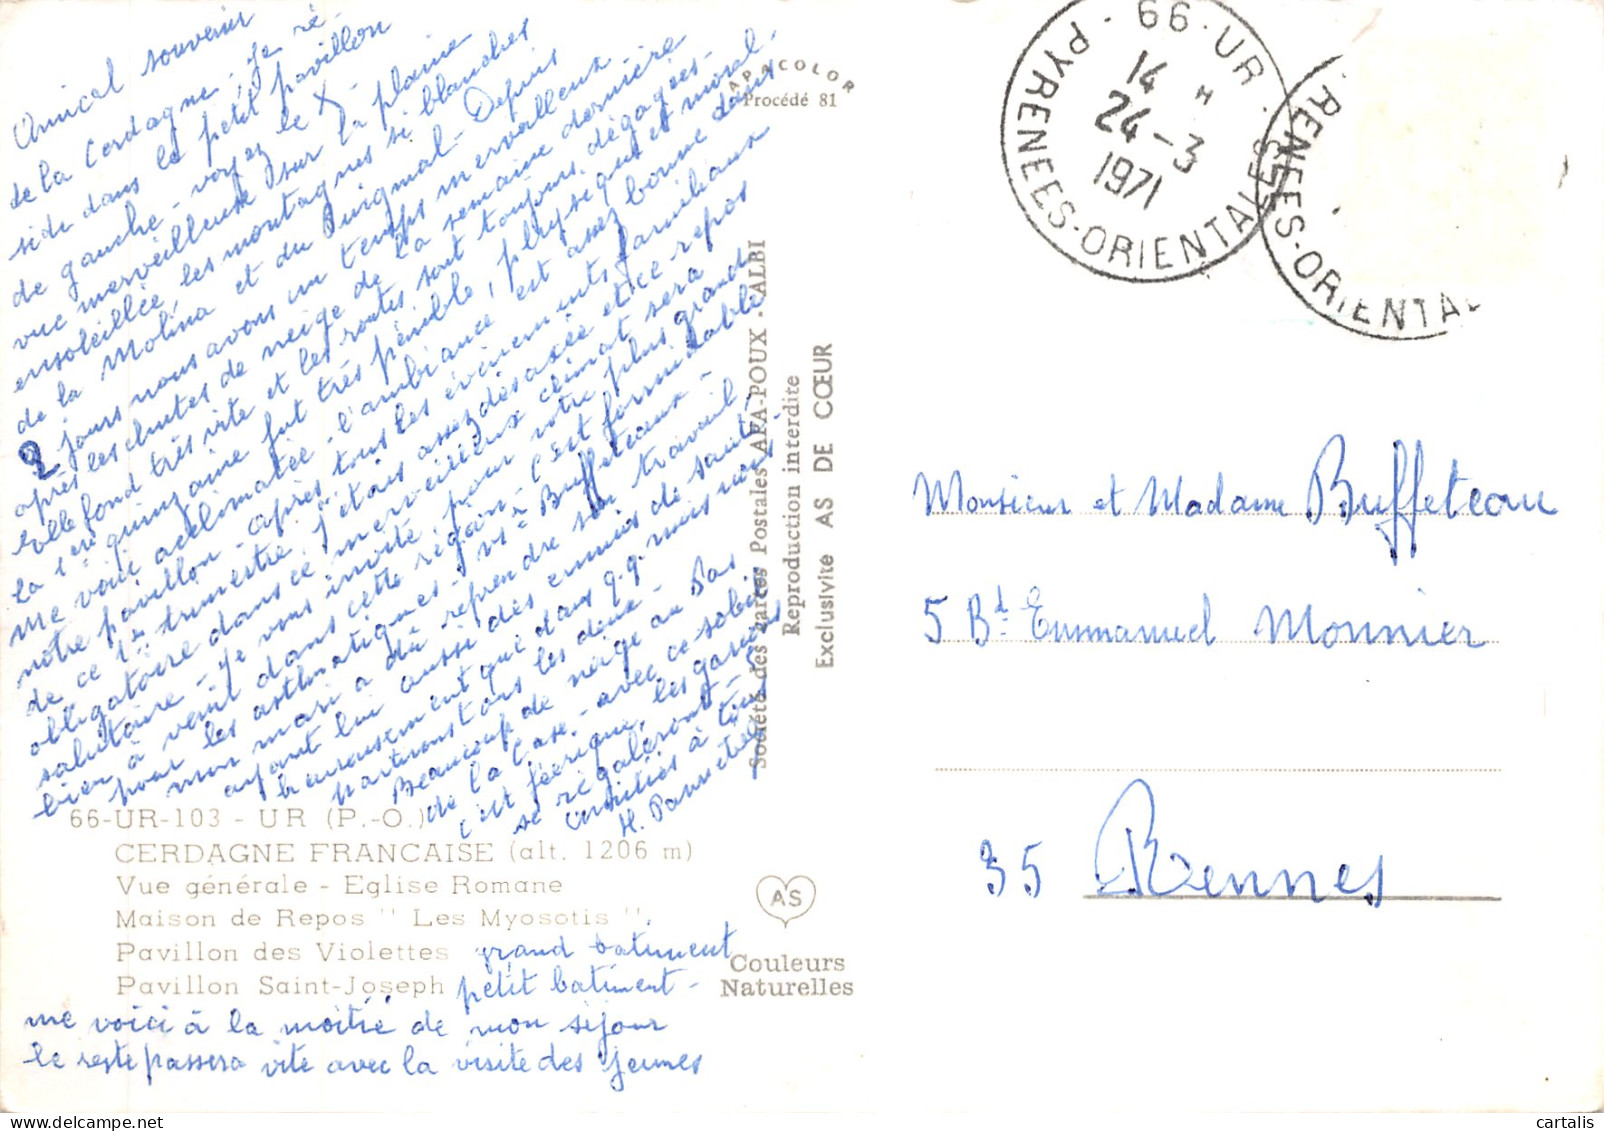 Amical souvenir
de la Cerdagne, je ré-
side dans le petit pavillon
de gauche - voyez le X -
vue merveilleuse sur la plaine
ensoleillée, les montagnes si blanches
de la Molina et du Puigmal - Depuis
2 jours nous avons un temps merveilleux
après les chutes de neige de la semaine dernière
elle fond très vite et les routes sont toujours dégagées -
la 1ère quinzaine fut très pénible, physique et moral -
me voici acclimatée - l'ambiance est assez bonne dans
notre pavillon - après tous les évènements familiaux
de ce 1er trimestre j'étais assez désaxée et ce repos
obligatoire dans ce merveilleux climat sera
salutaire - Je vous invite, pour votre plus grand
bien à venir dans cette région - c'est formidable
pour les asthmatiques - Buffeteaux -
mon mari a dû reprendre son travail
ayant lui aussi des ennuis de santé -
heureusement que dans q.q. mois nous
partirons tous les deux -
Beaucoup de neige au Pas
de la Case - avec ce soleil
c'est féerique, les garçons
se régaleront -
amitiés à tous
H.
66-UR-103 - UR (P.-O.)
CERDAGNE FRANCAISE (alt. 1206 m)
Vue générale - Eglise Romane
Maison de Repos " Les Myosotis ",
Pavillon des Violettes grand batiment
Pavillon Saint-Joseph petit batiment -
me voici à la moitié de mon séjour
le reste passera vite avec la visite des jeunes
APACOLOR
Procédé 81
Société des Cartes Postales APA-POUX - ALBI
Reproduction interdite
Exclusivité AS DE CŒUR
AS
Couleurs
Naturelles
66-UR - PYRENEES-ORIENTALES
14 H
24-3
1971
RENEES-ORIENTAL
Monsieur et Madame Buffeteau
5 Bd Emmanuel Mounier
35 Rennes
cartalis.com